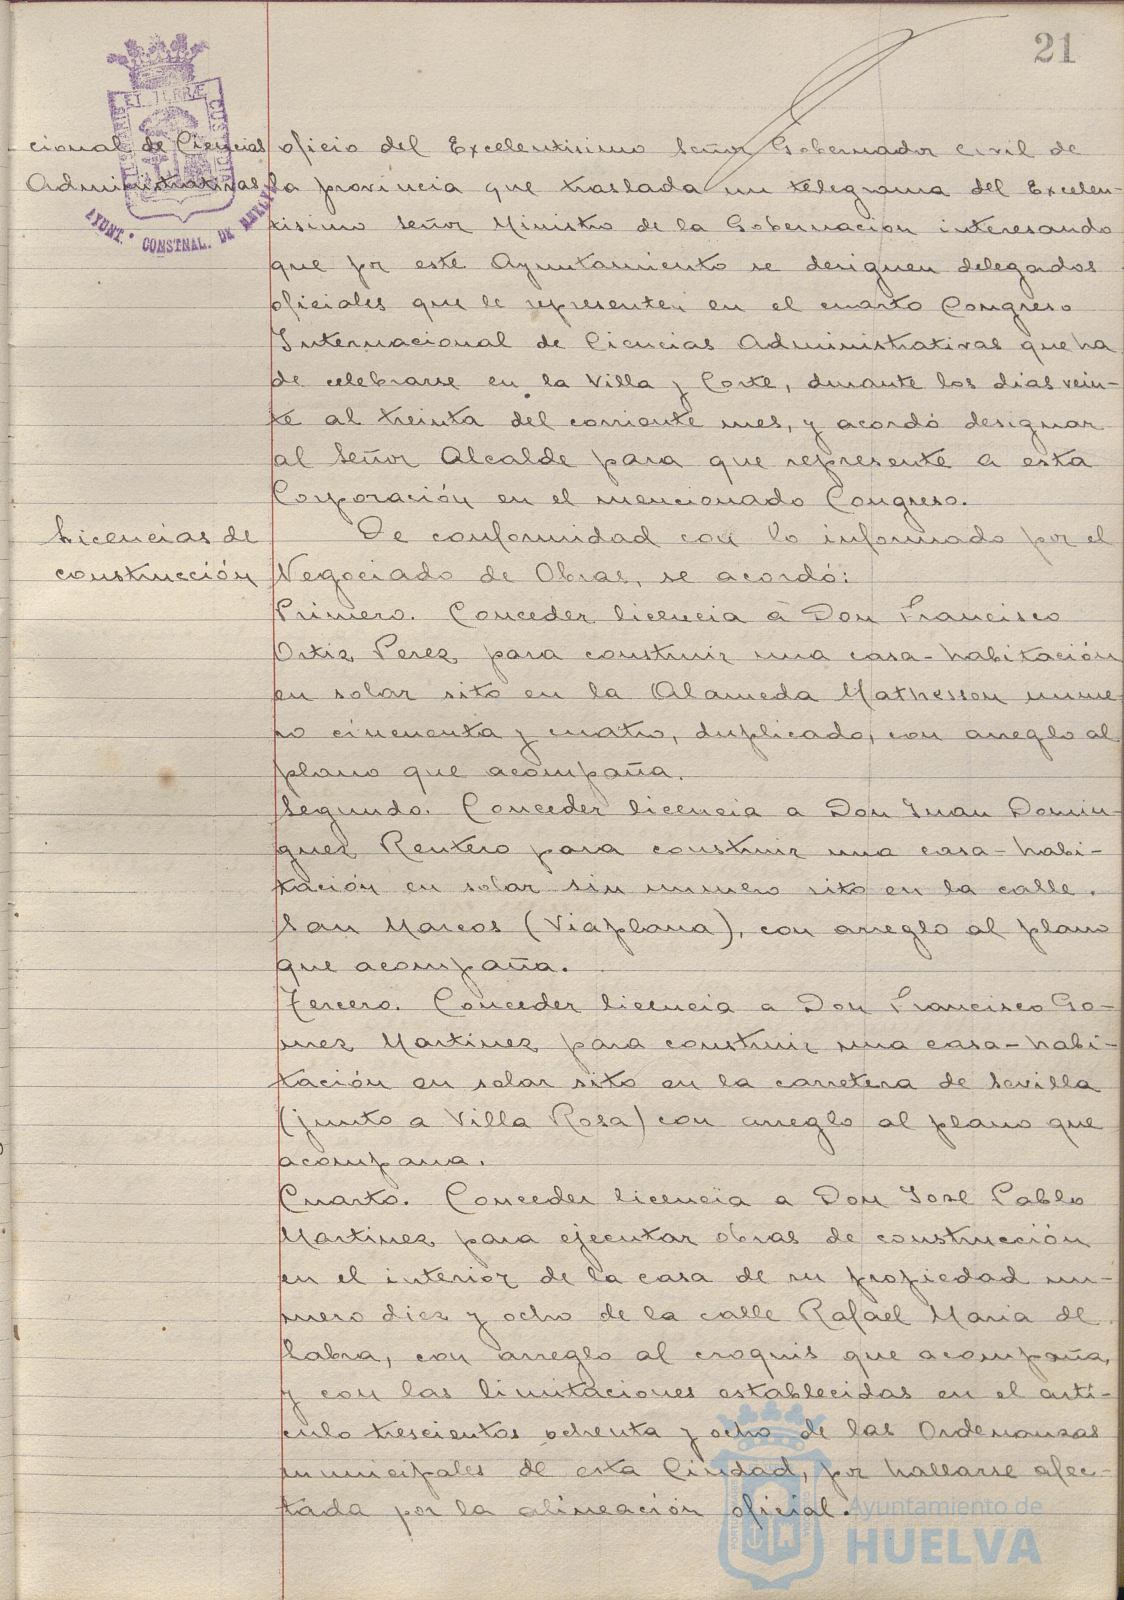 21
cional de Ciencias
Administrativas
AYUNT.º CONSTNAL. DE HUELVA
oficio del Excelentisimo Señor Gobernador Civil de
la provincia que traslada un telegrama del Excelen-
tisimo Señor Ministro de la Gobernación interesando
que por este Ayuntamiento se designen delegados
oficiales que le representen en el cuarto Congreso
Internacional de Ciencias Administrativas que ha
de celebrarse en la Villa y Corte, durante los dias vein-
te al treinta del corriente mes, y acordó designar
al Señor Alcalde para que represente a esta
Corporación en el mencionado Congreso.
Licencias de
construcción
De conformidad con lo informado por el
Negociado de Obras, se acordó:
Primero. Conceder licencia a Don Francisco
Ortiz Perez para construir una casa-habitación
en solar sito en la Alameda Mathesson nume-
ro cincuenta y cuatro, duplicado, con arreglo al
plano que acompaña.
Segundo. Conceder licencia a Don Juan Domin-
guez Rentero para construir una casa-habi-
tación en solar sin numero sito en la calle
San Marcos (Viaplana), con arreglo al plano
que acompaña.
Tercero. Conceder licencia a Don Francisco Go-
mez Martinez para construir una casa-habi-
tación en solar sito en la carretera de Sevilla
(junto a Villa Rosa) con arreglo al plano que
acompana.
Cuarto. Conceder licencia a Don José Pablo
Martinez para ejecutar obras de construcción
en el interior de la casa de su propiedad nu-
mero diez y ocho de la calle Rafael Maria de
Labra, con arreglo al croquis que acompaña,
y con las limitaciones establecidas en el artí-
culo trescientos ochenta y ocho de las Ordenanzas
municipales de esta Ciudad, por hallarse afec-
tada por la alineación oficial.
Ayuntamiento de
HUELVA